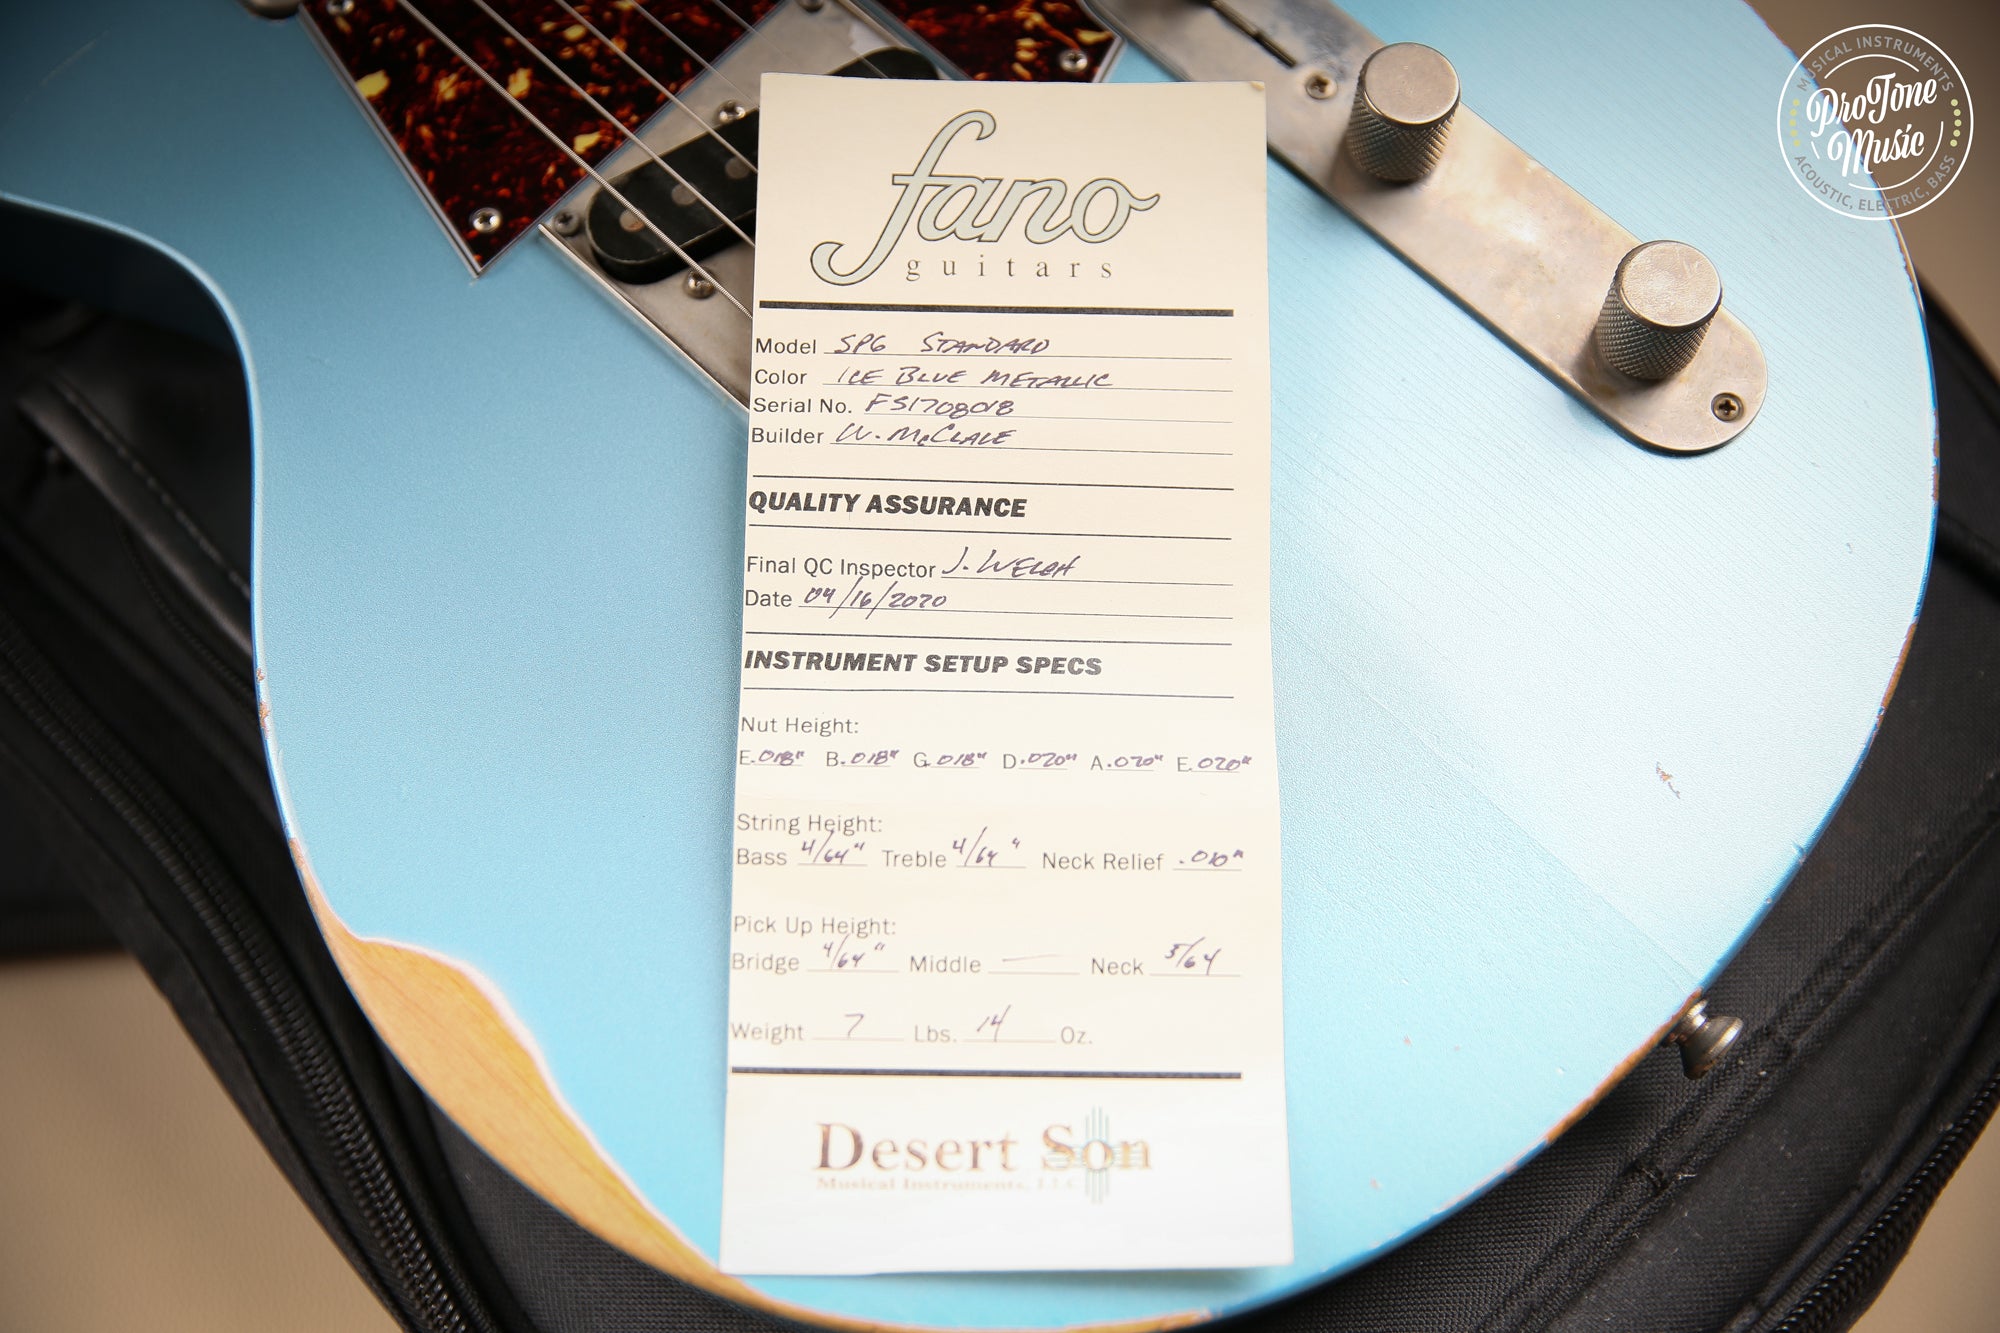 fano
guitars
Model SP6 STANDARD
Color ICE BLUE METALLIC
Serial No. FS1708018
Builder W. McCLACE
QUALITY ASSURANCE
Final QC Inspector J. WELCH
Date 04/16/2020
INSTRUMENT SETUP SPECS
Nut Height:
E .018" B .018" G .018" D .020" A .020" E .020"
String Height:
Bass 4/64" Treble 4/64" Neck Relief .010"
Pick Up Height:
Bridge 4/64" Middle — Neck 5/64
Weight 7 Lbs. 14 Oz.
Desert Son
Musical Instruments, LLC
MUSICAL INSTRUMENTS
ProTone
Music
ACOUSTIC, ELECTRIC, BASS